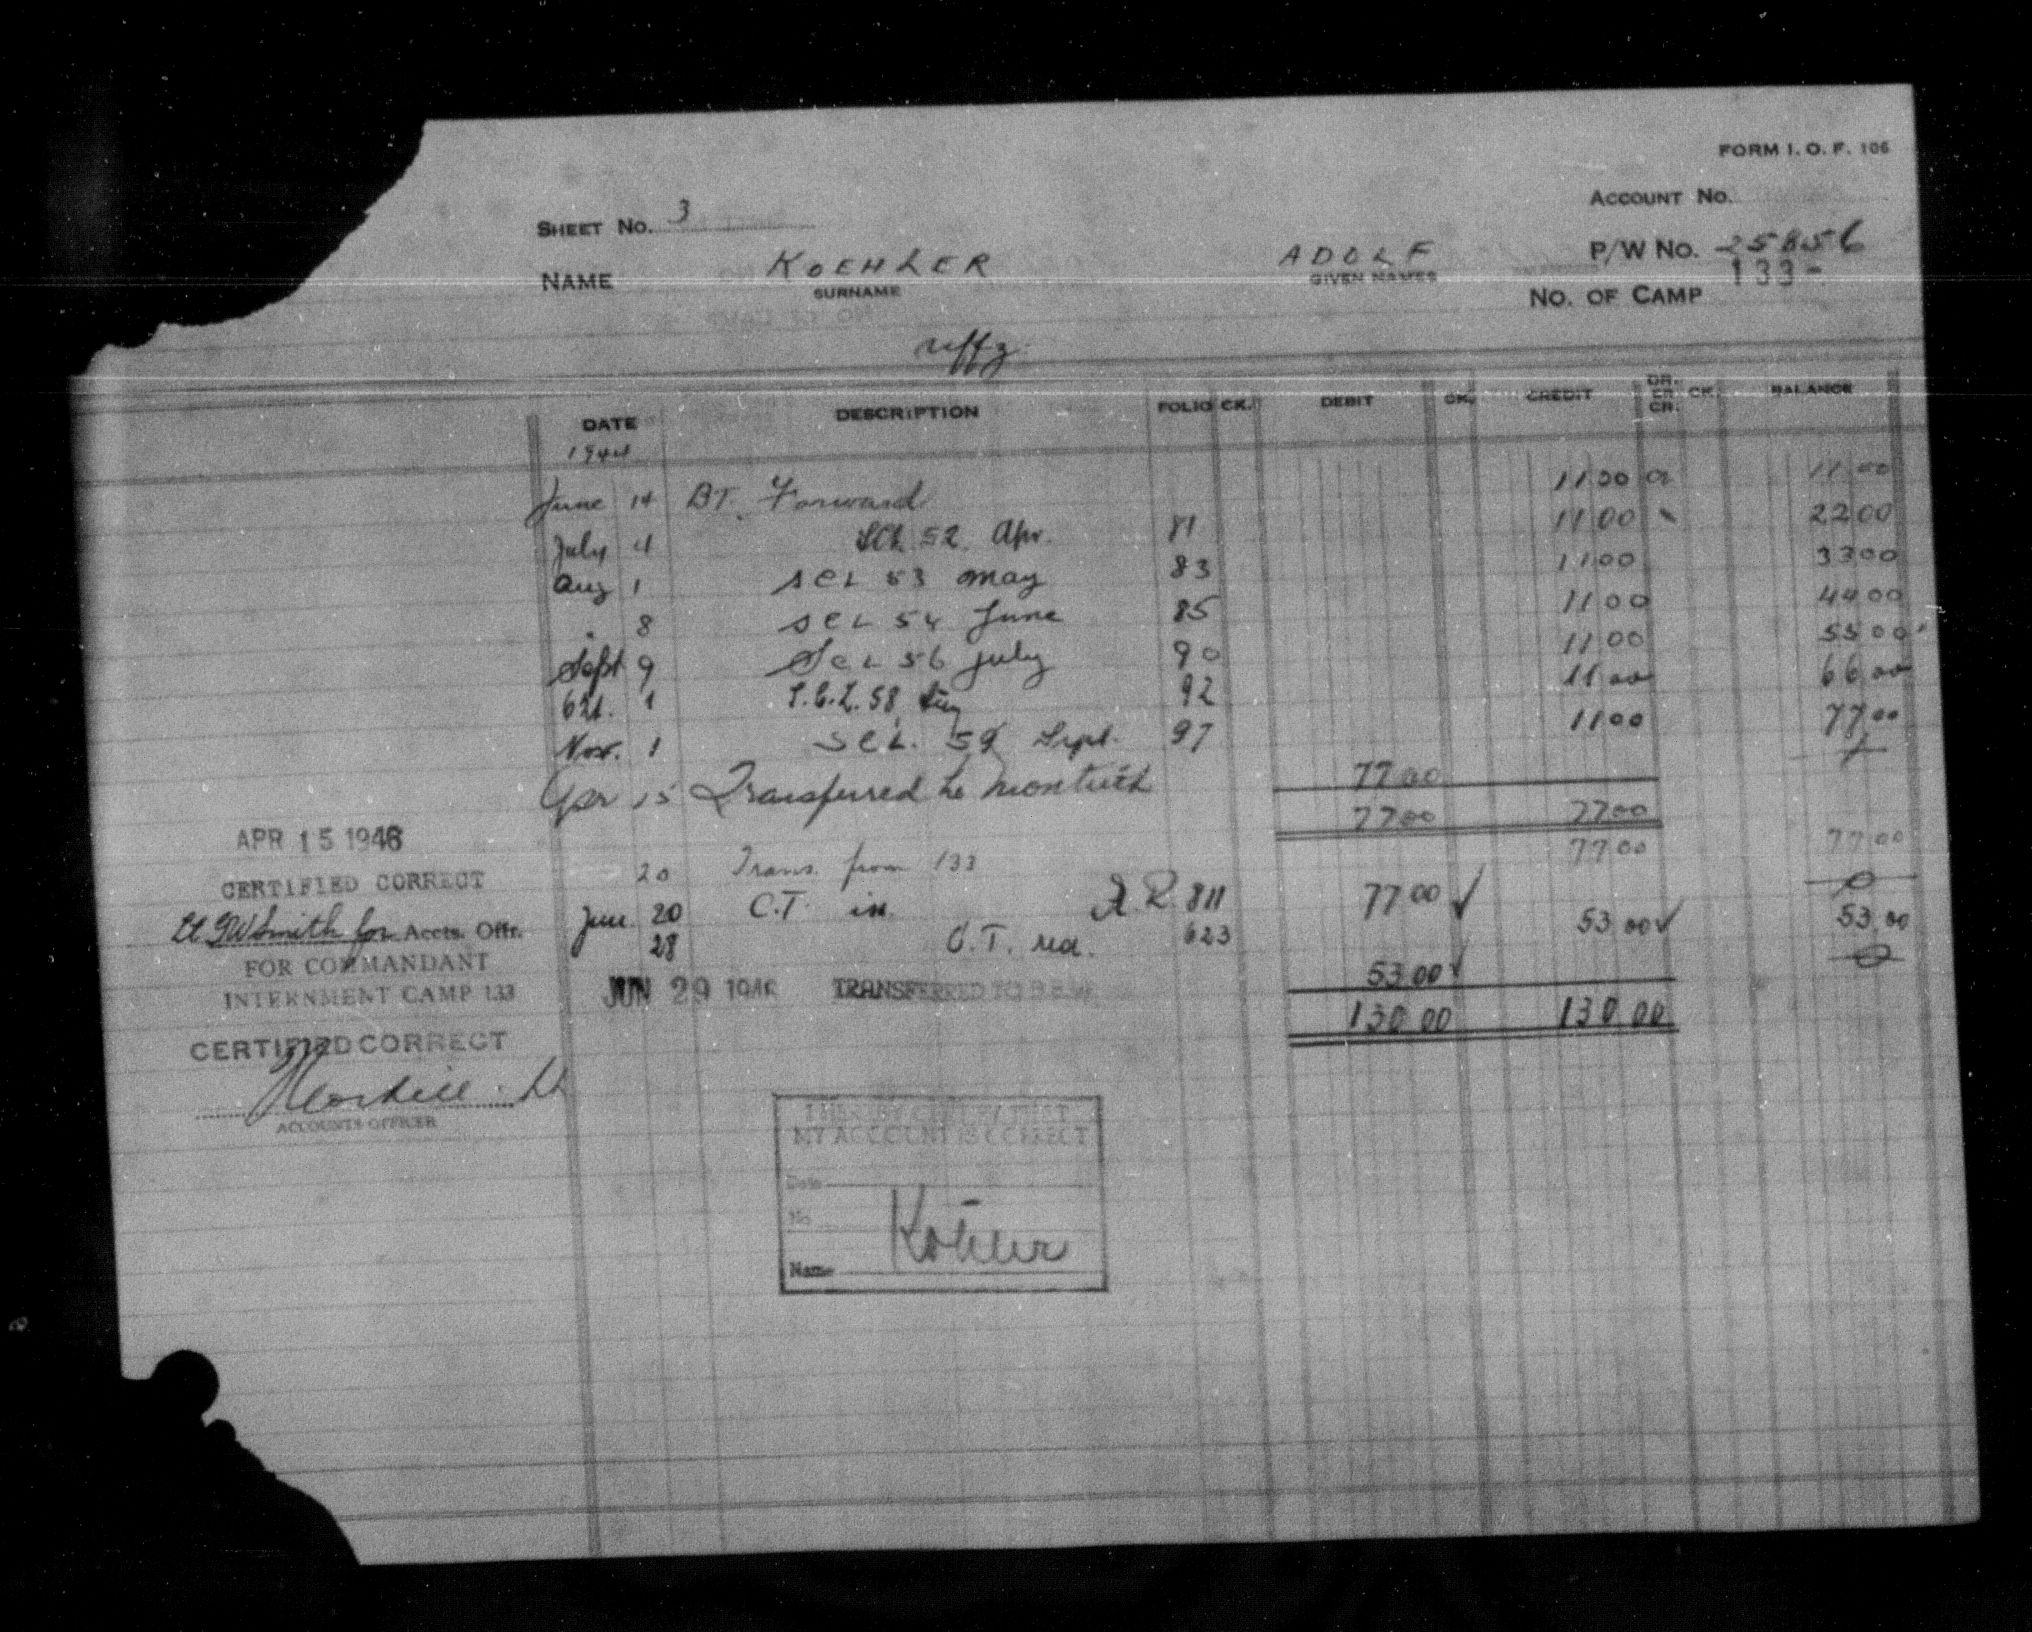 FORM I. O. F. 106
ACCOUNT No.
SHEET No. 3
P/W No. 25856
NAME KOEHLER ADOLF
SURNAME GIVEN NAMES
No. OF CAMP 133-
uffz.
DATE DESCRIPTION FOLIO CK. DEBIT CK. CREDIT DR. OR CR. CK. BALANCE
1944
June 14 BT. Forward 11 00 11 00
July 4 SCL 52 Apr. 81 11 00 22 00
Aug 1 SCL 53 May 83 11 00 33 00
8 SCL 54 June 85 11 00 44 00
Sept 9 SCL 56 July 90 11 00 55 00
Oct. 1 S.C.L. 58 Aug 92 11 00 66 00
Nov. 1 SCL. 59 Sept. 97 11 00 77 00
Apr 15 Transferred to Monteith 77 00
77 00 77 00
APR 15 1946
CERTIFIED CORRECT
Lt GW Smith for Accts. Offr.
FOR COMMANDANT
INTERNMENT CAMP 133
20 Trans. from 133 77 00 77 00
Jun 20 C.T. in 811 77 00 ✓ 0
28 C.T. 623 53 00 ✓ 53 00
53 00 ✓ 0
JUN 29 1946 TRANSFERRED TO
130 00 130 00
CERTIFIED CORRECT
ACCOUNTS OFFICER
I HEREBY CERTIFY THAT
MY ACCOUNT IS CORRECT
Date
No
Name Köhler